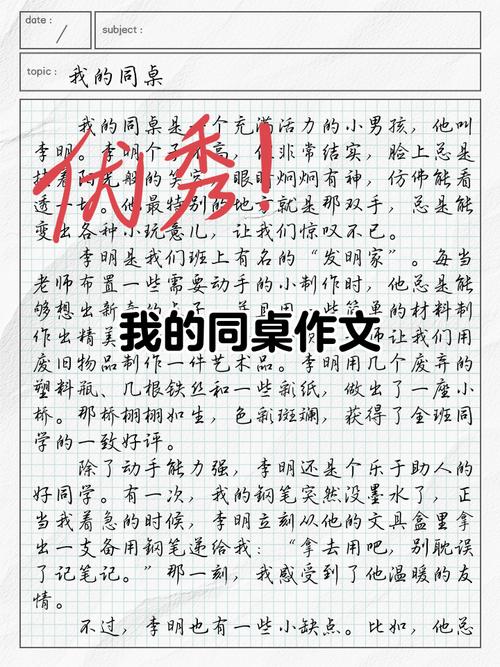 date :
subject :
topic : 我的同桌
我的同桌是一个充满活力的小男孩，他叫
李明。李明个子不高，但非常结实，脸上总是
挂着阳光般的笑容，眼睛炯炯有神，仿佛能看
透一切。他最特别的地方就是那双手，总是能
变出各种小玩意儿，让我们惊叹不已。
优秀！
李明是我们班上有名的“发明家”。每当
老师布置一些需要动手的小制作时，他总是能
够想出新奇的点子，并且用一些简单的材料制
作出精美
师让我们用
我的同桌作文
废旧物品制作一件艺术品。李明用几个废弃的
塑料瓶、几根铁丝和一些彩纸，做出了一座小
桥。那桥栩栩如生，色彩斑斓，获得了全班同
学的一致好评。
除了动手能力强，李明还是个乐于助人的
好同学。有一次，我的钢笔突然没墨水了，正
当我着急的时候，李明立刻从他的文具盒里拿
出一支备用钢笔递给我：“拿去用吧，别耽误
了记笔记。”那一刻，我感受到了他温暖的友
情。
不过，李明也有一些小缺点。比如，他总